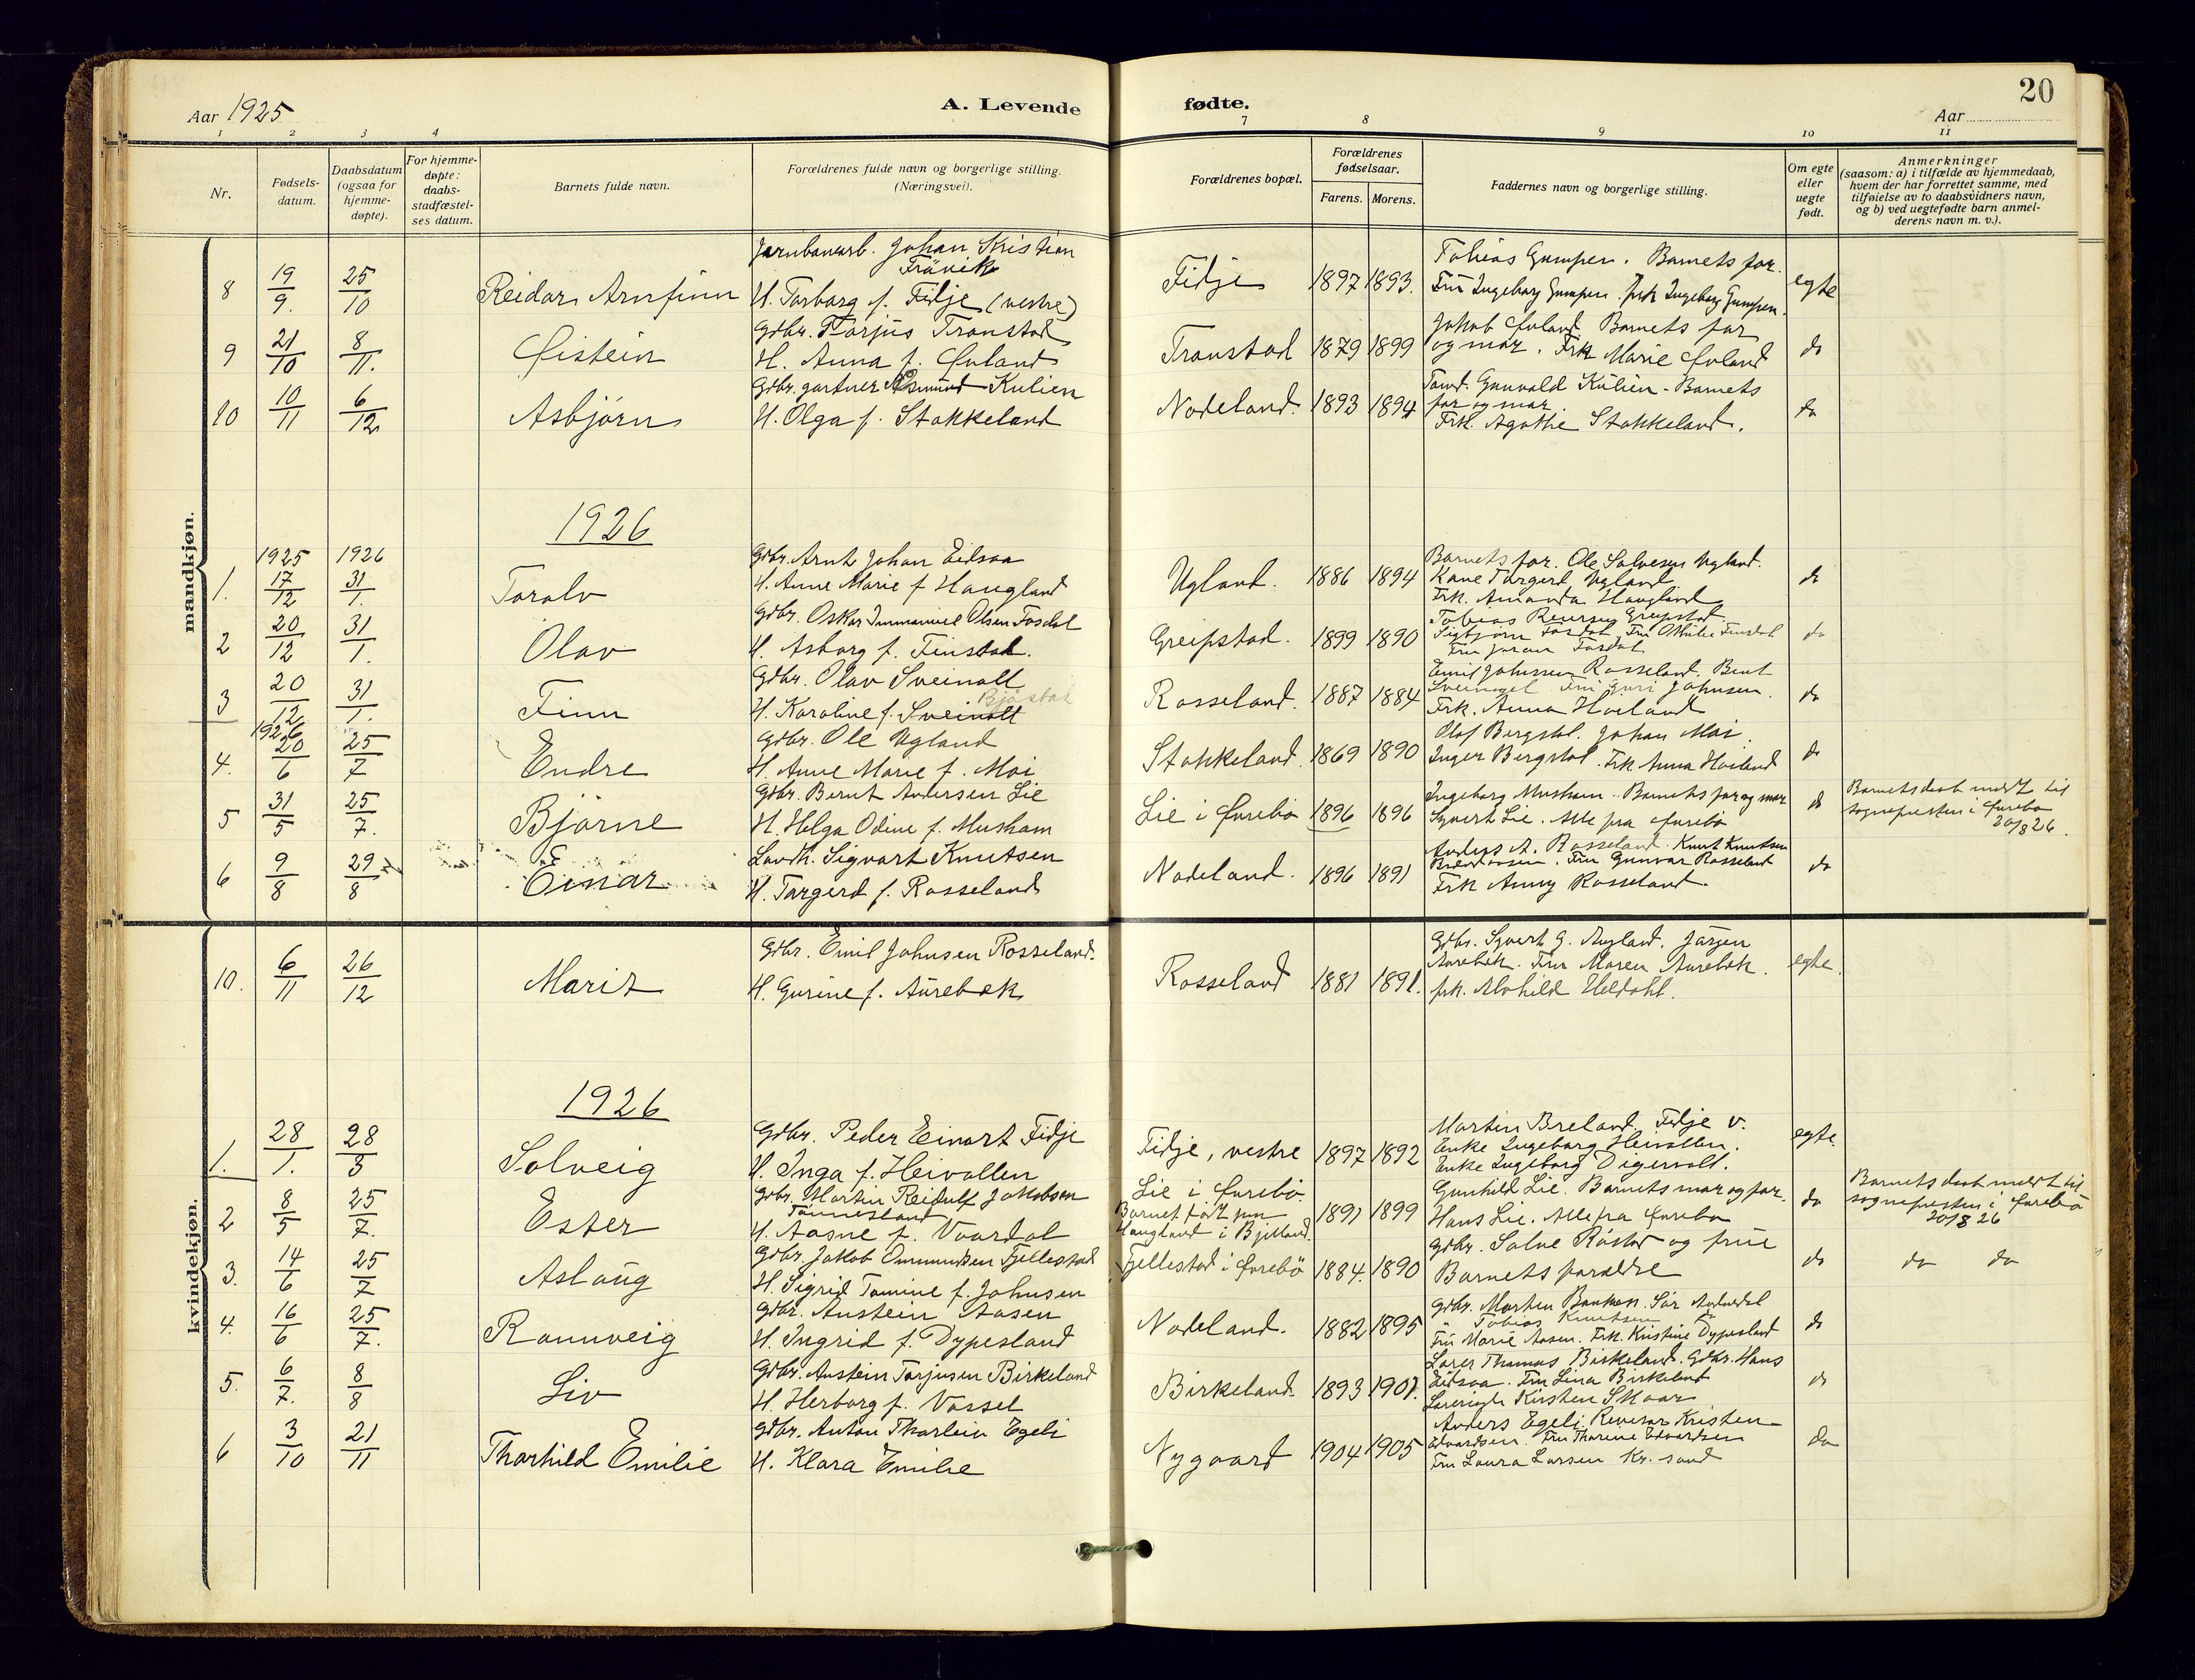 Aar 1925
A. Levende
fødte.
20
Aar
1 2 3 4 7 8 9 10 11
Nr.
Fødsels-
datum.
Daabsdatum
(ogsaa for
hjemme-
døpte).
For hjemme-
døpte:
daabs-
stadfæstel-
ses datum.
Barnets fulde navn.
Forældrenes fulde navn og borgerlige stilling.
(Næringsvei).
Forældrenes bopæl.
Forældrenes
fødselsaar.
Farens. Morens.
Faddernes navn og borgerlige stilling.
Om egte
eller
uegte
født.
Anmerkninger
(saasom: a) i tilfælde av hjemmedaab,
hvem der har forrettet samme, med
tilføielse av to daabsvidners navn,
og b) ved uegtefødte barn anmel-
derens navn m. v.).
mandkjøn.
8 19/9. 25/10 Reidar Arnfinn
Jernbanearb. Johan Kristian
Trävik
H. Torborg f. Fidje (vestre)
Fidje 1897 1893.
Tobias Gumpen. Barnets far.
Fru Ingeborg Gumpen. frk Ingeborg Gumpen.
egte
9 21/10 8/11. Øistein
Gdbr. Torjus Tronstad
H. Anna f. Øvland
Tronstad 1879 1899
Jakob Øvland Barnets far
og mor. Frk Marie Øvland
do
10 10/11 6/12 Asbjörn
Gdbr. gartner Asmund Kulien
H. Olga f. Stokkeland
Nodeland. 1893 1894
Tomd. Gunvald Kulien. Barnets
far og mor.
Frk. Agathe Stokkeland.
do
1926
1925 1926
1. 17/12 31/1. Toralv
Gdbr. Arnt Johan Eidsaa
H. Anne Marie f Haugland
Ugland. 1886 1894
Barnets far. Ole Salvesen Ugland.
Kone Torgerd Ugland
Frk. Amanda Haugland
do
2 20/12 31/1. Olav
Gdbr. Oskar Immanuel Olsen Fosdal
H. Asborg f. Finstad.
Greipstad. 1899 1890
Tobias Reiersen Greipstad
Sigbjörn Fosdal, Fru Othilie Finsdal
Fru Joran Fosdal
do
3 20/12 31/1. Finn
Gdbr. Olav Sveinall
H. Karoline f. Sveinall
Rosseland. 1887 1884
Emil Johnsen Rosseland. Bent
Sveinall Fru Guri Johnsen.
Frk. Anna Hoiland
do
1926
4. 20/6 25/7 Endre
Gdbr. Ole Ugland
H. Anne Marie f. Moi
Stokkeland. 1869 1890
Olaf Bergstøl. Johan Moi.
Inger Bergstøl. Frk Anna Hoiland
do
5 31/5 25/7. Bjarne
Gdbr. Bernt Andersen Lie
H. Helga Odine f. Musham
Lie i Øvrebø 1896 1896
Ingeborg Musham. Barnets far og mor
Syvert Lie. Alle fra Øvrebø
do
Barnets daab meldt til
sognepresten i Øvrebø
20/8 26.
6 9/8 29/8 Einar
Landh. Sigvart Knutsen
H. Torgerd f. Rosseland
Nodeland. 1896 1891
Anders A. Rosseland. Knut Knutsen
Fru Gunvor Rosseland
Frk Anny Rosseland.
do
kvindekjøn.
10. 6/11 26/12 Marit
Gdbr. Emil Johnsen Rosseland.
H. Gurine f. Aurebæk
Rosseland 1881 1891.
Gdbr. Syvert G. Augland. Jörgen
Aurebæk. Fru Maren Aurebæk.
frk. Alvhild Heldahl.
egte.
1926
1. 28/1. 28/3 Solveig
Gdbr. Peder Einart Fidje
H. Inga f. Heivollen
Fidje, vestre 1897 1892
Martin Breland. Fidje v.
Enke Ingeborg Heivollen.
Enke Ingeborg Digervoll.
egte.
2 8/5 25/7. Ester
Gdbr. Martin Reidulf Jakobsen
Tönnesland
H. Aasne f. Vaardal
Lie i Øvrebö.
Barnet født paa
Haugland i Bjelland.
1891 1899
Gunhild Lie. Barnets mor og far.
Hans Lie. Alle fra Øvrebø
do
Barnets daab meldt til
sognepresten i Øvrebø
20/8 26
3. 14/6 25/7 Aslaug
Gdbr Jakob Ommundsen Fjellestad
H. Sigrid Tomine f. Johnsen
Fjellestad i Øvrebö 1884. 1890
Gdbr. Salve Röstad og frue
Barnets forældre
do do do
4. 16/6 25/7. Rannveig
Gdbr. Austein Aasen
H. Ingrid f. Dypesland
Nodeland. 1882 1895
Gdbr. Morten Banken. Sör Audnedal
" Tobias Knutsen do
Fru Marie Aasen. Frk. Kristine Dypesland
do
5. 6/7. 8/8 Liv
Gdbr. Austein Torjusen Birkeland
H. Herborg f. Vassel
Birkeland. 1893 1901.
Lærer Thomas Birkeland. Gdbr. Hans
Eidsaa. Fru Lina Birkeland
Lærerinde Kirsten Skaar
do
6 3/10 21/11 Thorhild Emilie
Gdbr. Anton Thorlein Egeli
H. Klara Emilie
Nygaard 1904 1905
Anders Egeli, Revisor Kristen
Edvardsen. Fru Thorine Edvardsen
Fru Laura Larsen Kr. sand
do